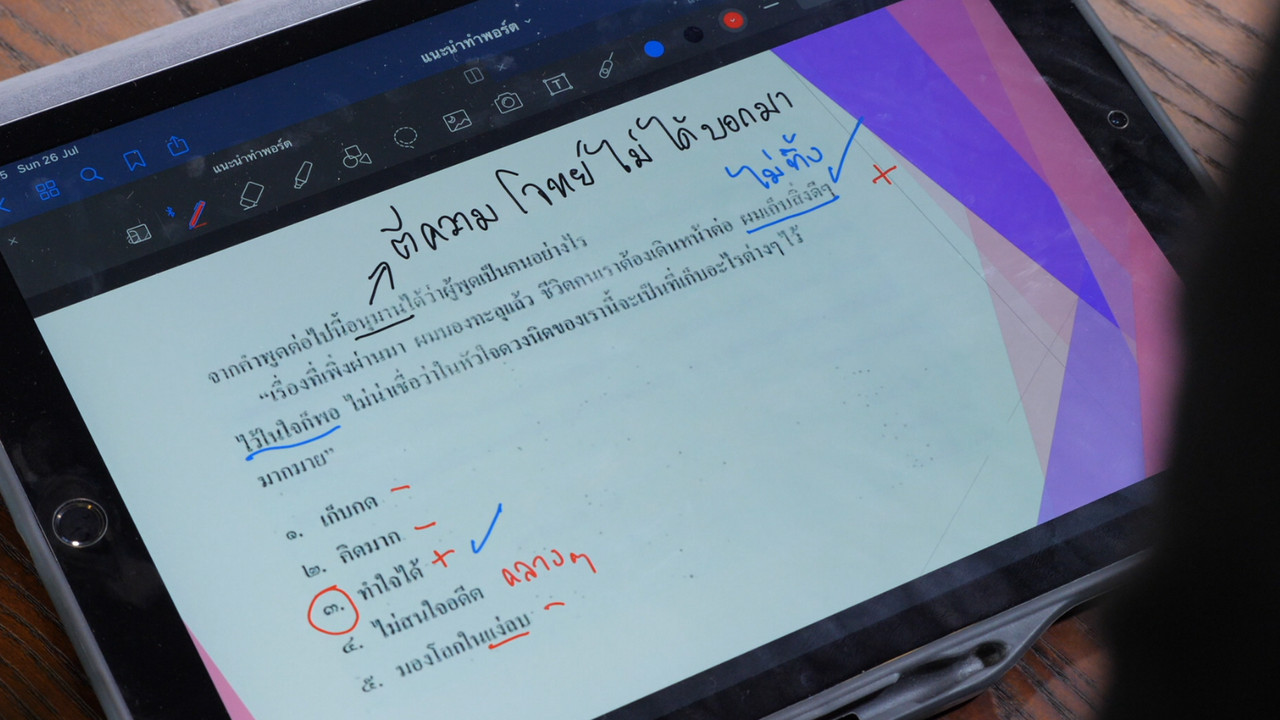 Sun 26 Jul
แนะนำทำพอร์ต
แนะนำทำพอร์ต
ตีความ โจทย์ไม่ได้บอกมา
ไม่ทิ้ง
+
จากคำพูดต่อไปนี้อนุมานได้ว่าผู้พูดเป็นคนอย่างไร
“เรื่องที่เพิ่งผ่านมา ผมมองทะลุแล้ว ชีวิตคนเราต้องเดินหน้าต่อ ผมเก็บสิ่งดีๆ
ไว้ในใจก็พอ ไม่น่าเชื่อว่าในหัวใจดวงนิดของเรานี้จะเป็นที่เก็บอะไรต่างๆ ไว้
มากมาย”
๑. เก็บกด -
๒. คิดมาก -
๓. ทำใจได้ + ✓
๔. ไม่สนใจอดีต กลางๆ
๕. มองโลกในแง่ลบ -